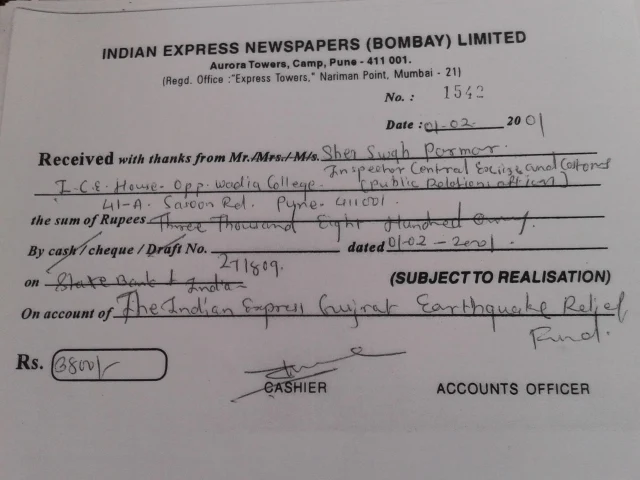 INDIAN EXPRESS NEWSPAPERS (BOMBAY) LIMITED
Aurora Towers, Camp, Pune - 411 001.
(Regd. Office :"Express Towers," Nariman Point, Mumbai - 21)
No. : 1542
Date : 01-02. 2001
Received with thanks from Mr./Mrs./M/s. Sher Parmar.
Inspector Central Excise and Customs
I.C.E. House. Opp. Wadia College. (Public Relations officer)
41-A. Rd. Pune. 411001.
the sum of Rupees Three Thousand Eight Hundred Only.
By cash / cheque / Draft No. 271809. dated 01-02-2001.
on State Bank of India (SUBJECT TO REALISATION)
On account of The Indian Express Gujrat Earthquake Relief
Fund.
Rs. 3800/-
CASHIER ACCOUNTS OFFICER